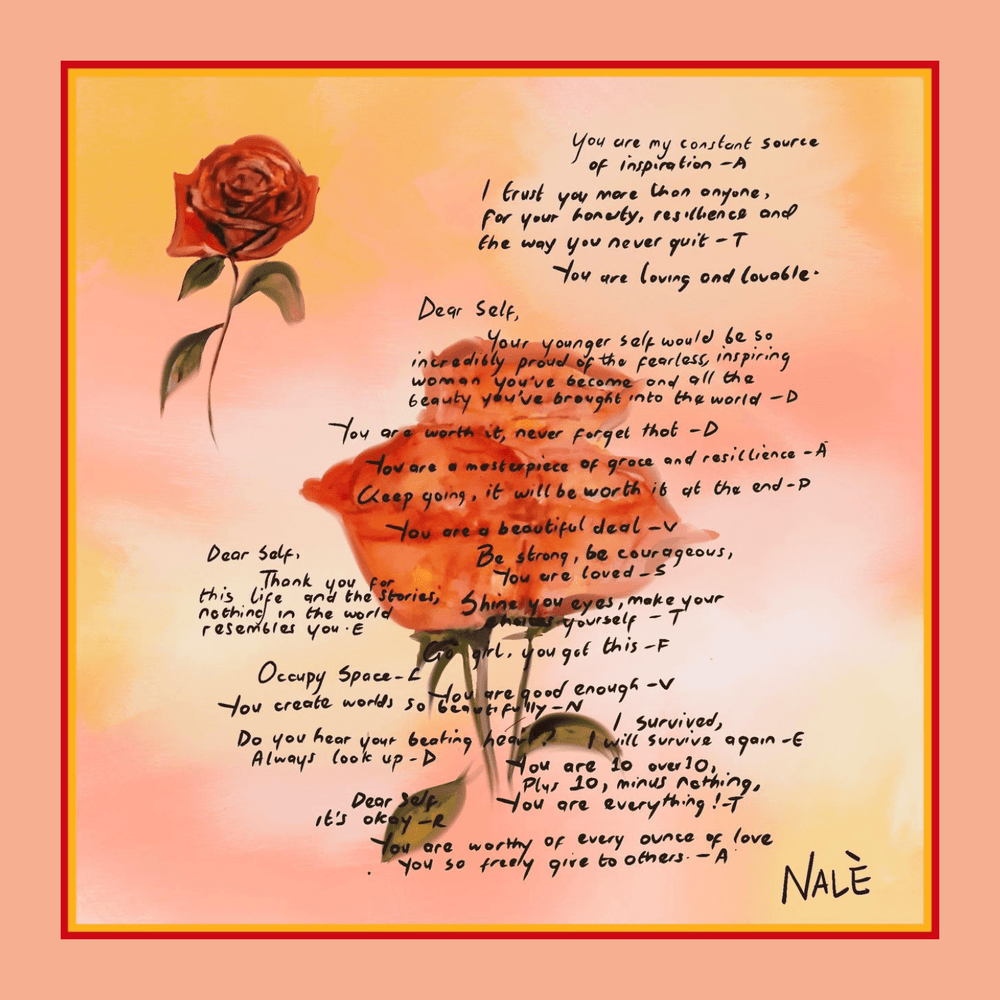 You are my constant source
of inspiration -A
I trust you more than anyone,
for your honesty, resillience and
the way you never quit - T
You are loving and lovable.
Dear Self,
Your younger self would be so
incredibly proud of the fearless, inspiring
woman you've become and all the
beauty you've brought into the world -D
You are worth it, never forget that -D
You are a masterpiece of grace and resillience -A
Keep going, it will be worth it at the end -P
You are a beautiful deal -V
Be strong, be courageous,
You are loved -S
Dear Self,
Thank you for
this life and the stories,
nothing in the world
resembles you. E
Shine you eyes, make your
choices yourself - T
Go girl, you got this -F
Occupy Space -L
You are good enough -V
You create worlds so beautifully -N
I survived,
I will survive again -E
Do you hear your beating heart?
Always look up -D
You are 10 over 10,
Plus 10, minus nothing,
You are everything! -T
Dear Self
it's okay -R
You are worthy of every ounce of love
You so freely give to others. - A
NALÈ